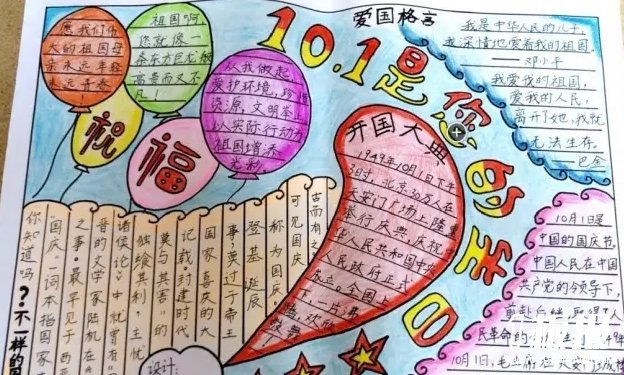 愿我们伟
大的祖国母
亲永远年轻
远青春
!
祖国啊
您就像一
条东方巨龙般
高贵而又不
凡!
祝
福
从我做起
爱护环境,珍惜
资源,文明举
以实际行动为
祖国增添
光彩。
爱国格言
我是中华人民的儿子,
我深情地爱着我的祖国。
——邓小平
我爱我的祖国,
爱我的人民,
离开了她,我就
无法生存。
——巴金
10.1是您的生日
开国大典
1949年10月1日下午
3时,北京30万人在
天安门广场上隆重
举行庆典,庆祝
华人民共和国中央
人民政府正式
成立。全国上
下一片沸
腾欢
10月1日是
中国的国庆节。
中国人民在中国
共产党的领导下,
取得了人
民革命的
10月1日,毛
你知道吗?不一样的国
“国庆”一词本指国家
之事,最早见于西
晋的文学家陆机在《
诸侯论》中就曾有“
独飨其利,主忧
莫与其害”的
记载。封建时代
国家喜庆的大
事,莫过于帝王
登基诞辰
称为国庆。
可见国庆
古而有之
设计: